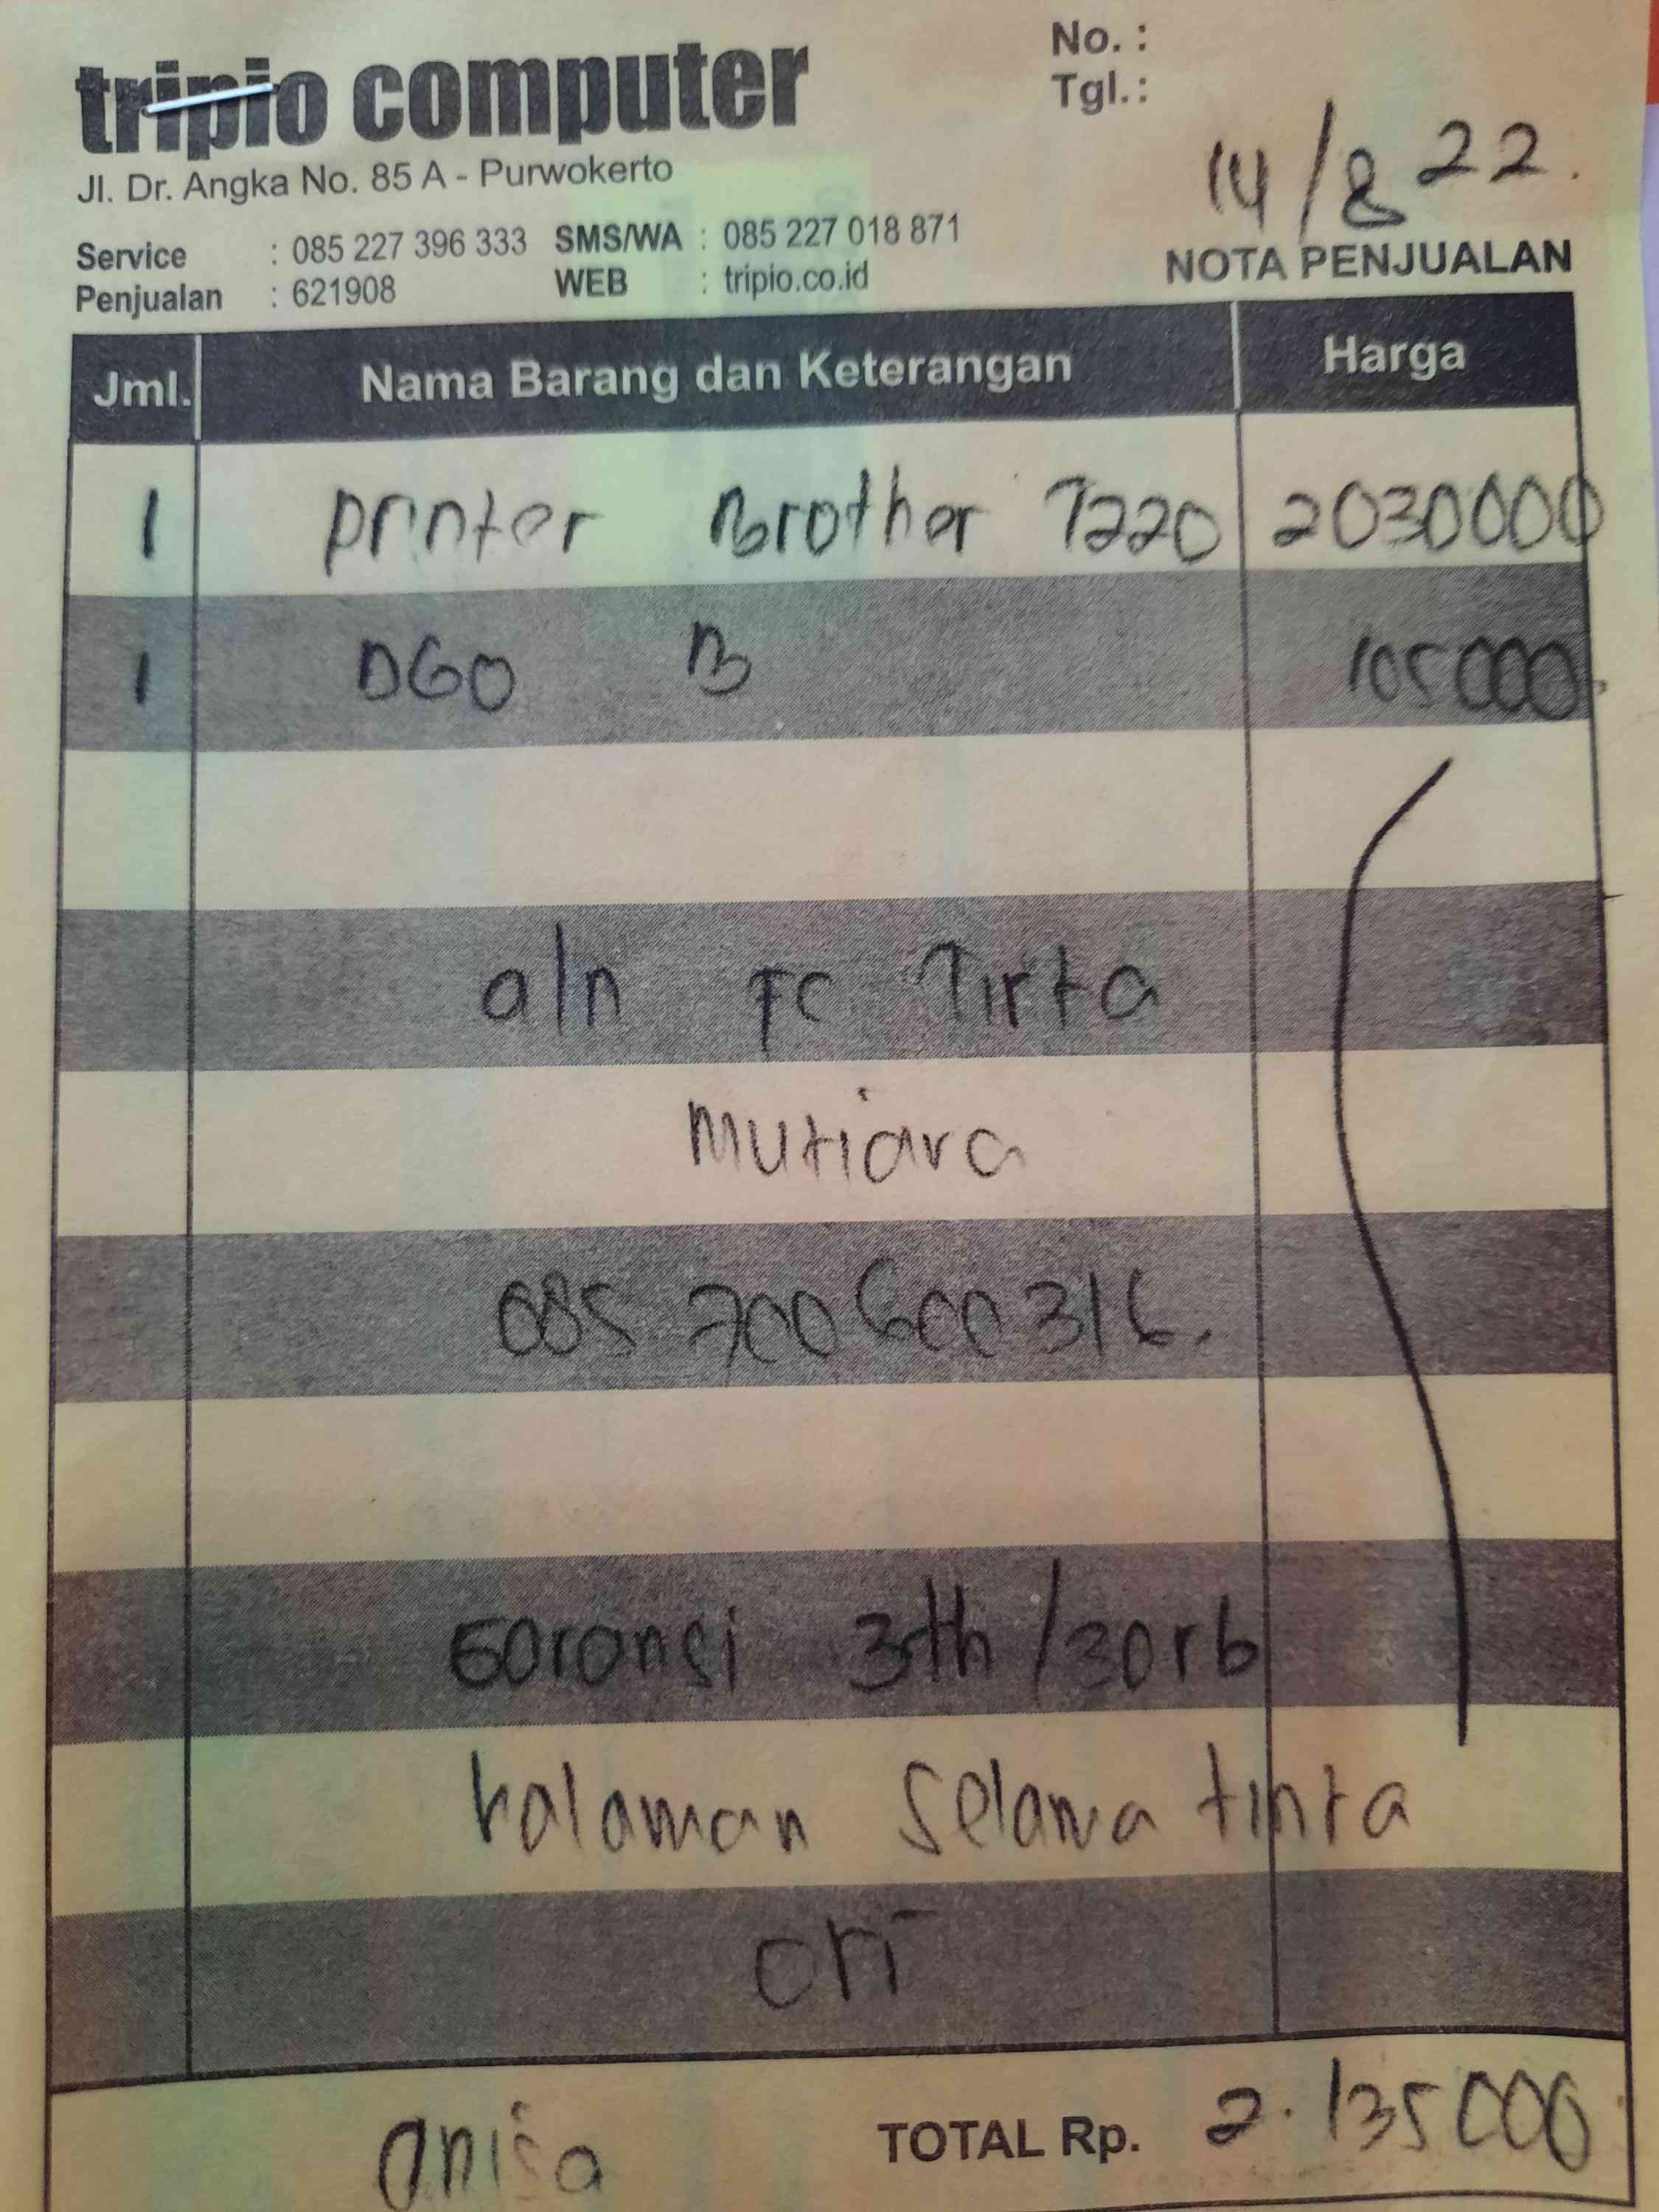 tripio computer
No. :
Tgl. :
14/8 22.
Jl. Dr. Angka No. 85 A - Purwokerto
Service : 085 227 396 333 SMS/WA : 085 227 018 871
Penjualan : 621908 WEB : tripio.co.id
NOTA PENJUALAN
Jml. Nama Barang dan Keterangan Harga
1 printer Brother T220 2030000
1 D60 B 105000
a/n FC Tirta
Mutiara
085 700600316.
Garansi 3th/30rb
halaman selama tinta
ori
anisa TOTAL Rp. 2.135000